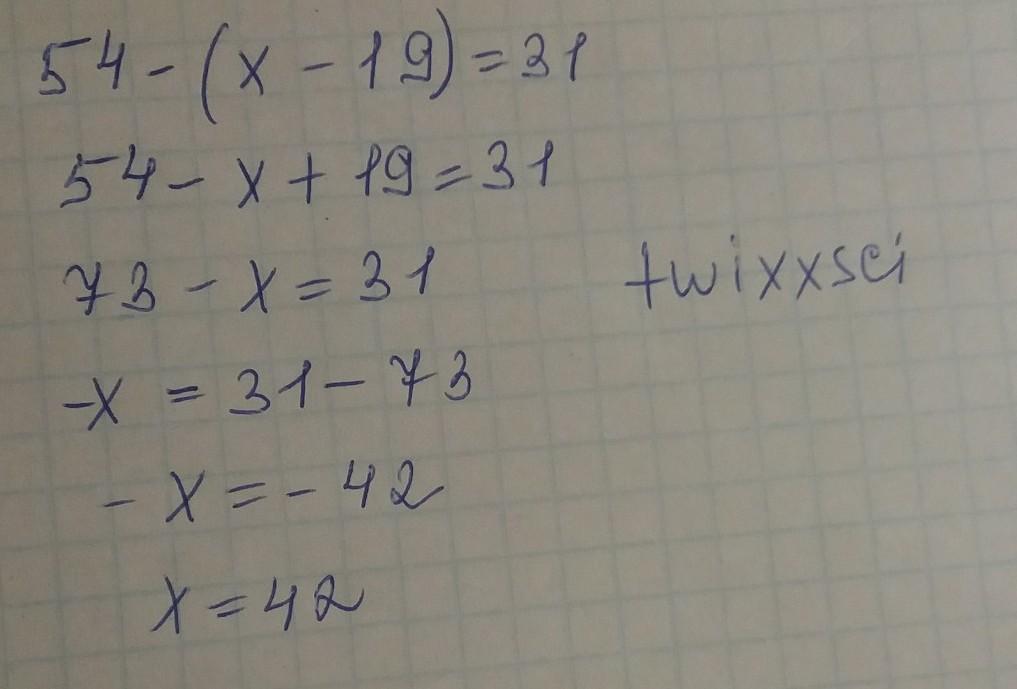 54 - (x - 19) = 31
54 - x + 19 = 31
73 - x = 31
twixxsci
-x = 31 - 73
- x = - 42
x = 42